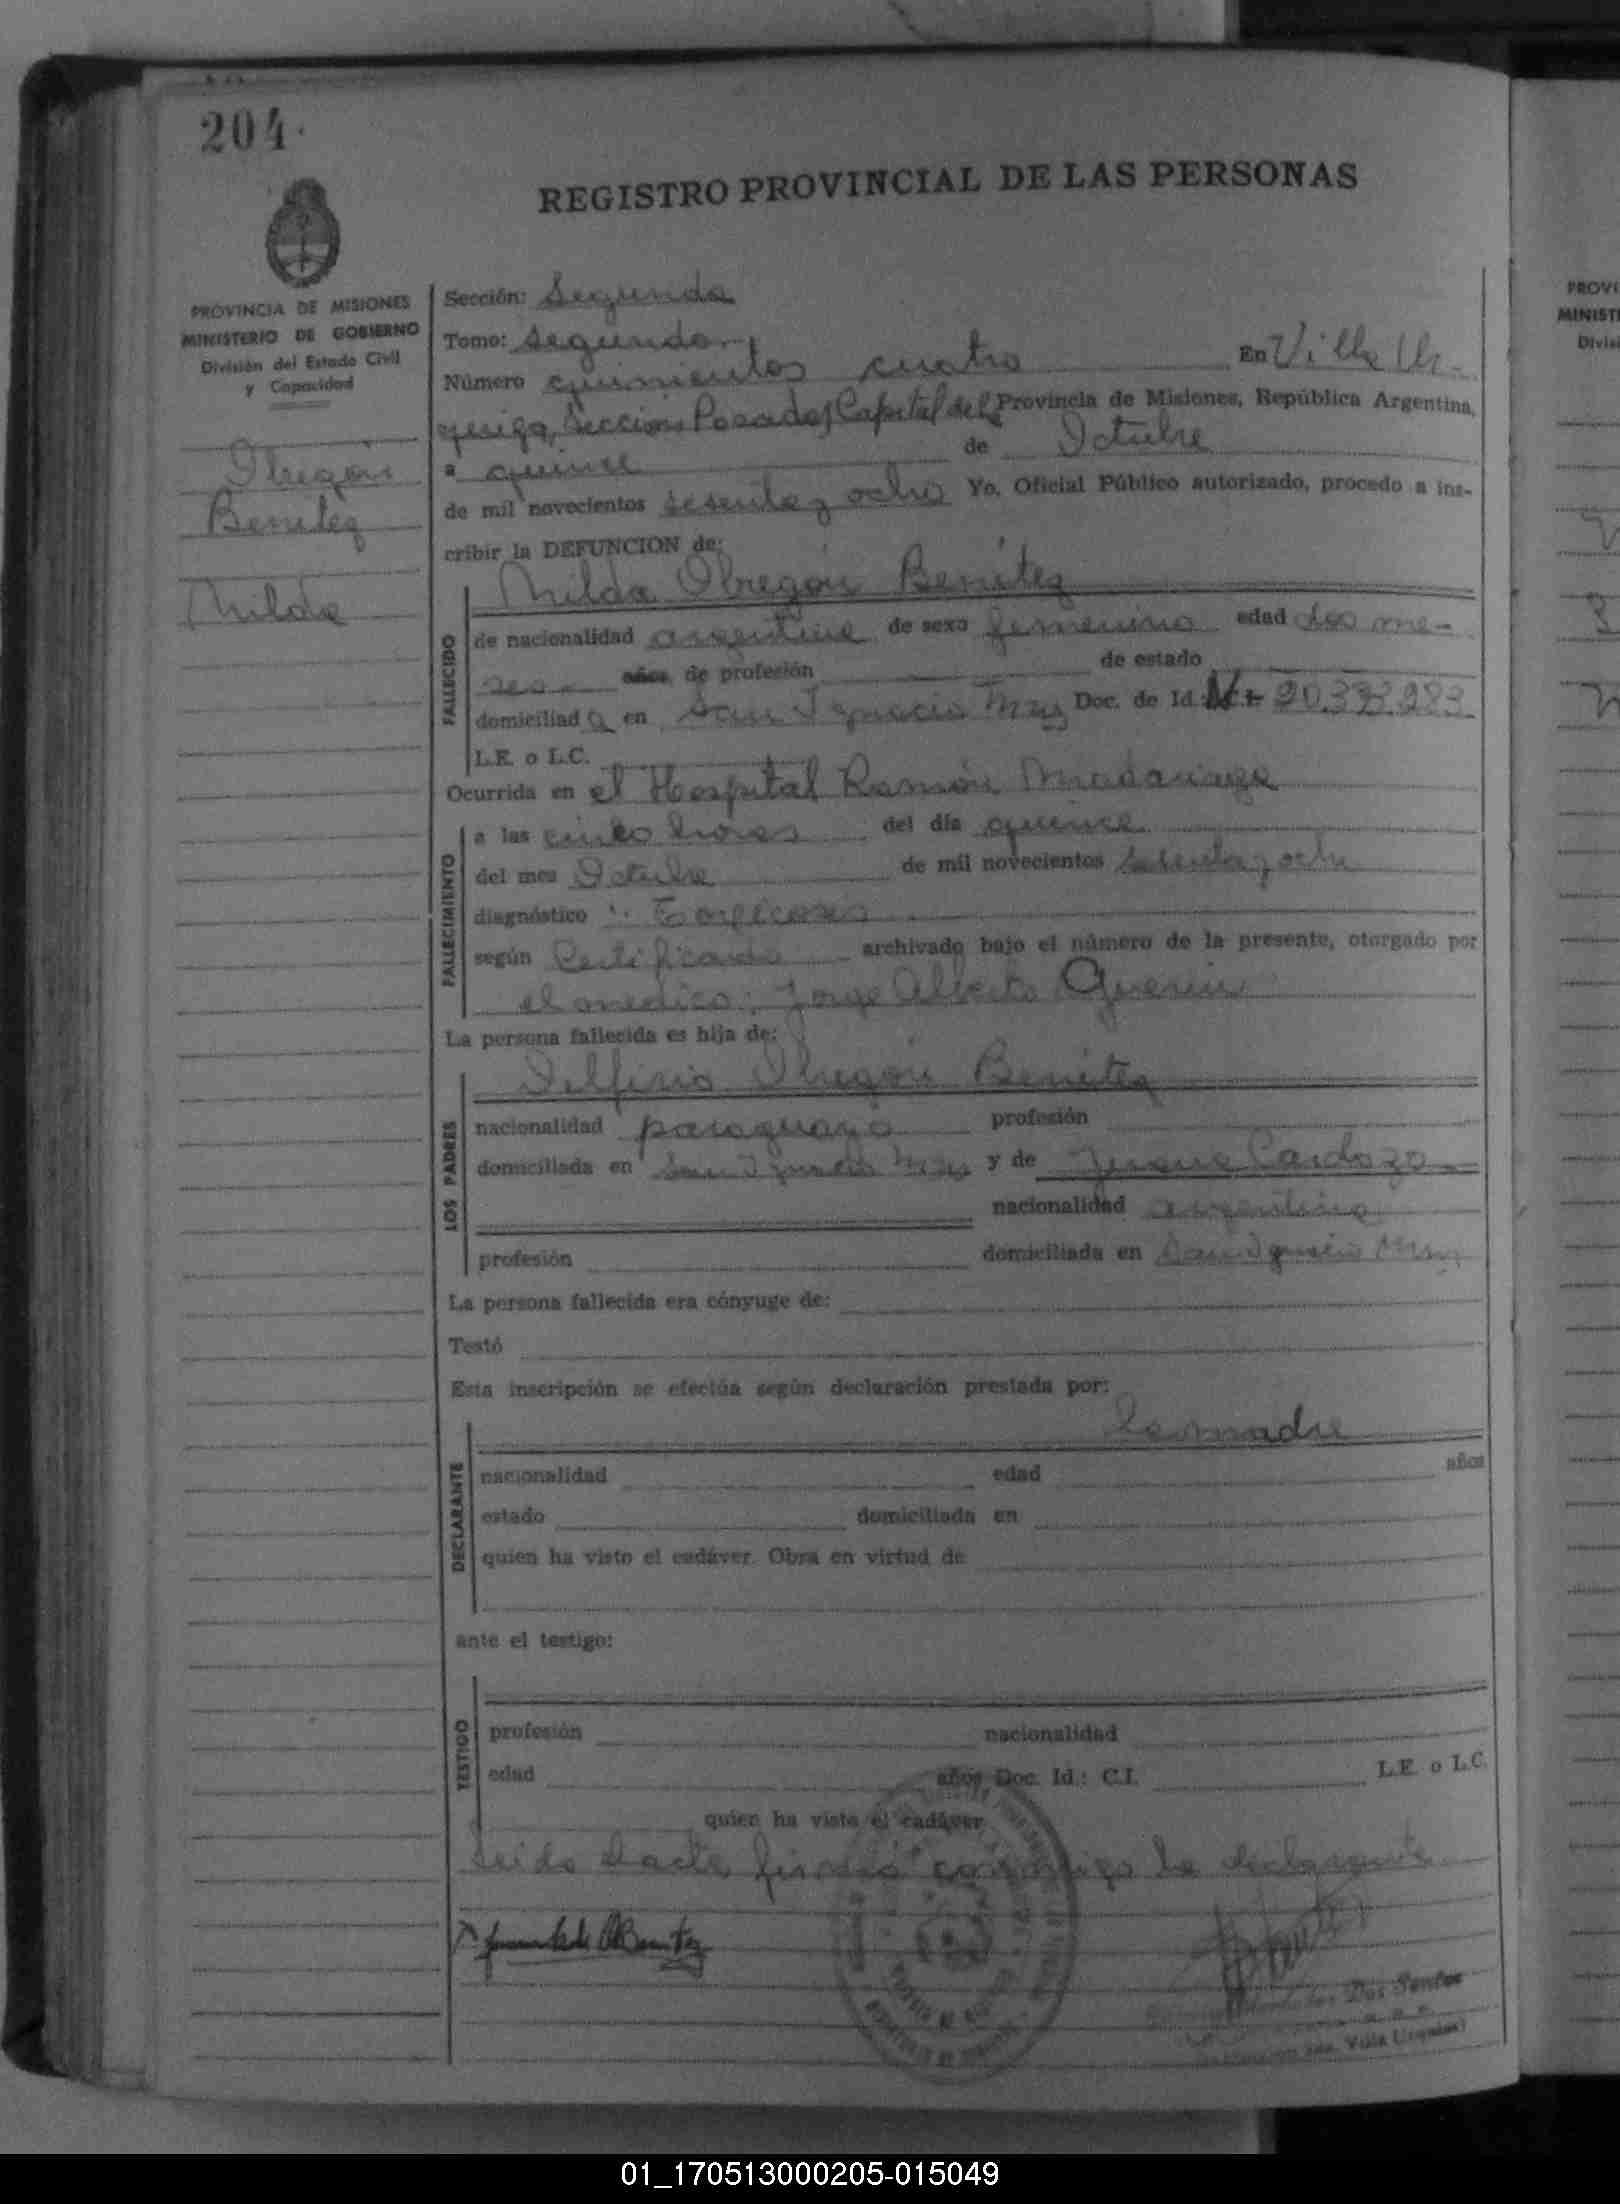 204.
REGISTRO PROVINCIAL DE LAS PERSONAS
PROVINCIA DE MISIONES
MINISTERIO DE GOBIERNO
División del Estado Civil
y Capacidad
Obregón
Benitez
Nilda
Sección: Segunda
Tomo: Segundo
Número quinientos cuatro En Villa Ur-
quiza, Sección Posadas, Capital de la Provincia de Misiones, República Argentina,
a quince de Octubre
de mil novecientos sesenta y ocho Yo, Oficial Público autorizado, procedo a ins-
cribir la DEFUNCION de:
Nilda Obregón Benítez
FALLECIDO
de nacionalidad argentina de sexo femenino edad dos me-
ses años, de profesión de estado
domiciliada en San Ignacio Mnes Doc. de Id.: C.I.
L.E. o L.C.
Ocurrida en el Hospital Ramón Madariaga
FALLECIMIENTO
a las cinco horas del día quince
del mes Octubre de mil novecientos sesenta y ocho
diagnóstico: Toxicosis
según Certificado archivado bajo el número de la presente, otorgado por
el medico: Jorge Alberto Guerin
La persona fallecida es hija de:
LOS PADRES
Delfino Obregón Benítez
nacionalidad paraguayo profesión
domiciliada en San Ignacio Mnes y de Juana Cardozo
nacionalidad argentina
profesión domiciliada en San Ignacio Mnes
La persona fallecida era cónyuge de:
Testó
Esta inscripción se efectúa según declaración prestada por:
la madre
DECLARANTE
nacionalidad edad años
estado domiciliada en
quien ha visto el cadáver. Obra en virtud de
ante el testigo:
TESTIGO
profesión nacionalidad
edad años Doc. Id.: C.I. L.E. o L.C.
quien ha visto el cadáver
Leida el acta, firmó conmigo la declarante
Benitez
Dos Santos
Villa Urquiza)
PROVI
MINIST
Divisi
01_170513000205-015049